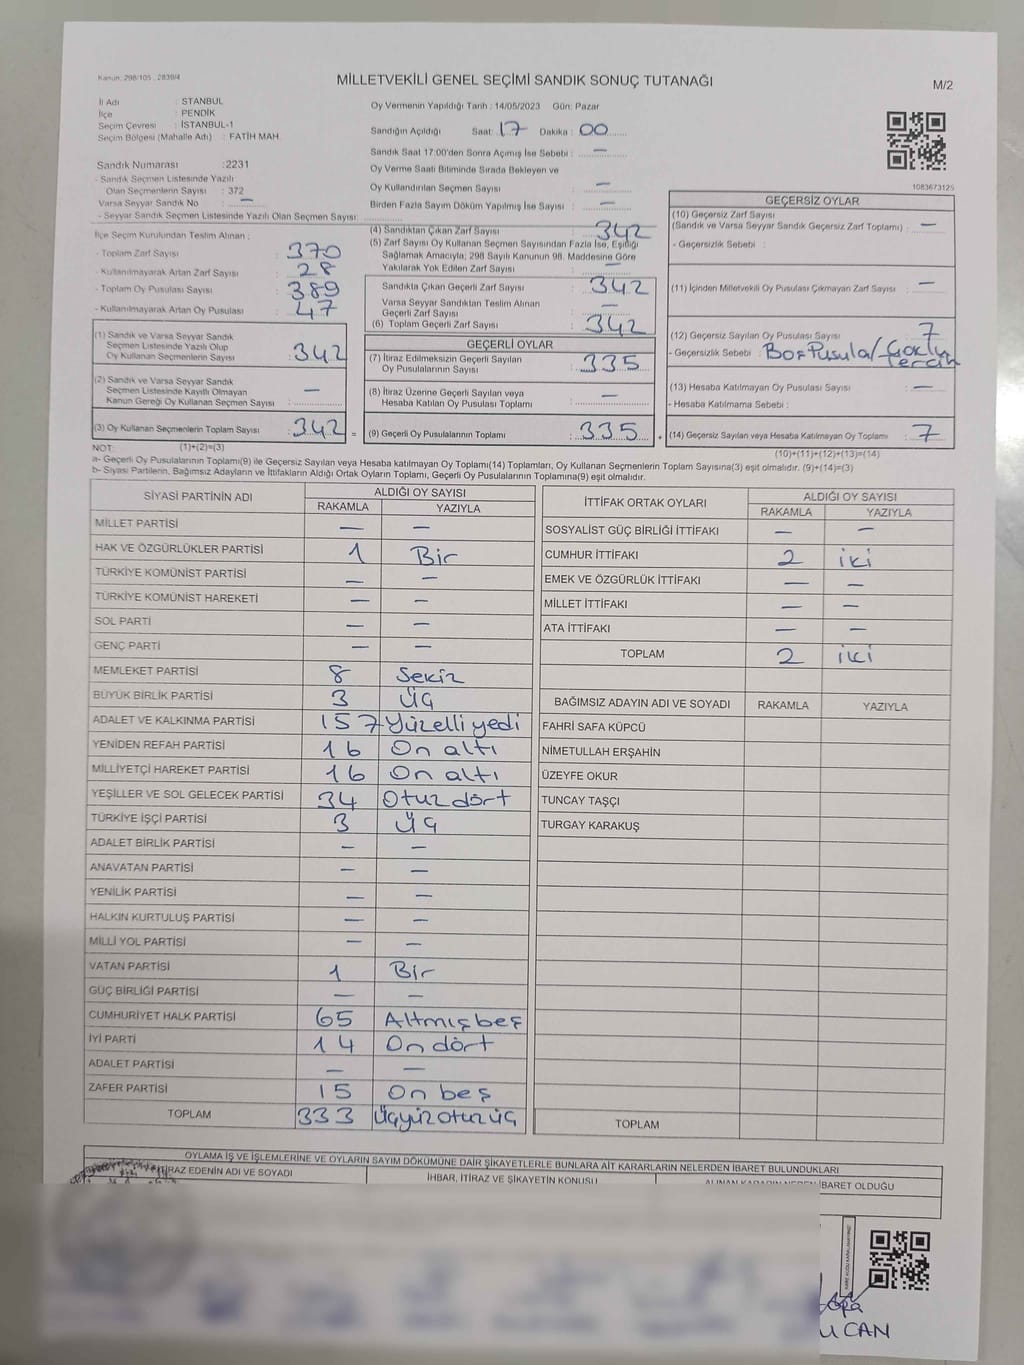 Kanun: 298/105 , 2839/4
MİLLETVEKİLİ GENEL SEÇİMİ SANDIK SONUÇ TUTANAĞI
M/2
İl Adı : STANBUL
İlçe : PENDİK
Seçim Çevresi : İSTANBUL-1
Seçim Bölgesi (Mahalle Adı) : FATİH MAH.
Oy Vermenin Yapıldığı Tarih : 14/05/2023 Gün: Pazar
Sandığın Açıldığı Saat: 17 Dakika : 00
Sandık Saat 17:00'den Sonra Açımış İse Sebebi : —
Oy Verme Saati Bitiminde Sırada Bekleyen ve
Oy Kullandırılan Seçmen Sayısı : —
Birden Fazla Sayım Döküm Yapılmış İse Sayısı : —
1083673125
Sandık Numarası :2231
- Sandık Seçmen Listesinde Yazılı
Olan Seçmenlerin Sayısı : 372
Varsa Seyyar Sandık No : —
- Seyyar Sandık Seçmen Listesinde Yazılı Olan Seçmen Sayısı:
İlçe Seçim Kurulundan Teslim Alınan :
- Toplam Zarf Sayısı : 370
- Kullanılmayarak Artan Zarf Sayısı : 28
- Toplam Oy Pusulası Sayısı : 389
- Kullanılmayarak Artan Oy Pusulası : 47
(1) Sandık ve Varsa Seyyar Sandık
Seçmen Listesinde Yazılı Olup
Oy Kullanan Seçmenlerin Sayısı : 342
(2) Sandık ve Varsa Seyyar Sandık
Seçmen Listesinde Kayıtlı Olmayan
Kanun Gereği Oy Kullanan Seçmen Sayısı : —
(3) Oy Kullanan Seçmenlerin Toplam Sayısı : 342 =
(4) Sandıktan Çıkan Zarf Sayısı : 342
(5) Zarf Sayısı Oy Kullanan Seçmen Sayısından Fazla İse, Eşitliği
Sağlamak Amacıyla; 298 Sayılı Kanunun 98. Maddesine Göre
Yakılarak Yok Edilen Zarf Sayısı : —
Sandıkta Çıkan Geçerli Zarf Sayısı : 342
Varsa Seyyar Sandıktan Teslim Alınan
Geçerli Zarf Sayısı : —
(6) Toplam Geçerli Zarf Sayısı : 342
GEÇERLİ OYLAR
(7) İtiraz Edilmeksizin Geçerli Sayılan
Oy Pusulalarının Sayısı : 335
(8) İtiraz Üzerine Geçerli Sayılan veya
Hesaba Katılan Oy Pusulası Toplamı : —
(9) Geçerli Oy Pusulalarının Toplamı : 335 +
GEÇERSİZ OYLAR
(10) Geçersiz Zarf Sayısı
(Sandık ve Varsa Seyyar Sandık Geçersiz Zarf Toplamı) : —
- Geçersizlik Sebebi :
(11) İçinden Milletvekili Oy Pusulası Çıkmayan Zarf Sayısı : —
(12) Geçersiz Sayılan Oy Pusulası Sayısı : 7
- Geçersizlik Sebebi : Boş Pusula/Çoklu
tercih
(13) Hesaba Katılmayan Oy Pusulası Sayısı : —
- Hesaba Katılmama Sebebi :
(14) Geçersiz Sayılan veya Hesaba Katılmayan Oy Toplamı : 7
NOT: (1)+(2)=(3) (10)+(11)+(12)+(13)=(14)
a- Geçerli Oy Pusulalarının Toplamı(9) ile Geçersiz Sayılan veya Hesaba katılmayan Oy Toplamı(14) Toplamları, Oy Kullanan Seçmenlerin Toplam Sayısına(3) eşit olmalıdır. (9)+(14)=(3)
b- Siyasi Partilerin, Bağımsız Adayların ve İttifakların Aldığı Ortak Oyların Toplamı, Geçerli Oy Pusulalarının Toplamına(9) eşit olmalıdır.
SİYASİ PARTİNİN ADI ALDIĞI OY SAYISI
RAKAMLA YAZIYLA
MİLLET PARTİSİ — —
HAK VE ÖZGÜRLÜKLER PARTİSİ 1 Bir
TÜRKİYE KOMÜNİST PARTİSİ — —
TÜRKİYE KOMÜNİST HAREKETİ — —
SOL PARTİ — —
GENÇ PARTİ — —
MEMLEKET PARTİSİ 8 Sekiz
BÜYÜK BİRLİK PARTİSİ 3 Üç
ADALET VE KALKINMA PARTİSİ 157 Yüzelli yedi
YENİDEN REFAH PARTİSİ 16 On altı
MİLLİYETÇİ HAREKET PARTİSİ 16 On altı
YEŞİLLER VE SOL GELECEK PARTİSİ 34 Otuz dört
TÜRKİYE İŞÇİ PARTİSİ 3 Üç
ADALET BİRLİK PARTİSİ — —
ANAVATAN PARTİSİ — —
YENİLİK PARTİSİ — —
HALKIN KURTULUŞ PARTİSİ — —
MİLLİ YOL PARTİSİ — —
VATAN PARTİSİ 1 Bir
GÜÇ BİRLİĞİ PARTİSİ — —
CUMHURİYET HALK PARTİSİ 65 Altmışbeş
İYİ PARTİ 14 On dört
ADALET PARTİSİ — —
ZAFER PARTİSİ 15 On beş
TOPLAM 333 Üçyüzotuzüç
İTTİFAK ORTAK OYLARI ALDIĞI OY SAYISI
RAKAMLA YAZIYLA
SOSYALİST GÜÇ BİRLİĞİ İTTİFAKI — —
CUMHUR İTTİFAKI 2 iki
EMEK VE ÖZGÜRLÜK İTTİFAKI — —
MİLLET İTTİFAKI — —
ATA İTTİFAKI — —
TOPLAM 2 iki
BAĞIMSIZ ADAYIN ADI VE SOYADI RAKAMLA YAZIYLA
FAHRİ SAFA KÜPCÜ
NİMETULLAH ERŞAHİN
ÜZEYFE OKUR
TUNCAY TAŞÇI
TURGAY KARAKUŞ
TOPLAM
OYLAMA İŞ VE İŞLEMLERİNE VE OYLARIN SAYIM DÖKÜMÜNE DAİR ŞİKAYETLERLE BUNLARA AİT KARARLARIN NELERDEN İBARET BULUNDUKLARI
İTİRAZ EDENİN ADI VE SOYADI İHBAR, İTİRAZ VE ŞİKAYETİN KONUSU ALINAN KARARIN NEDEN İBARET OLDUĞU
CAN